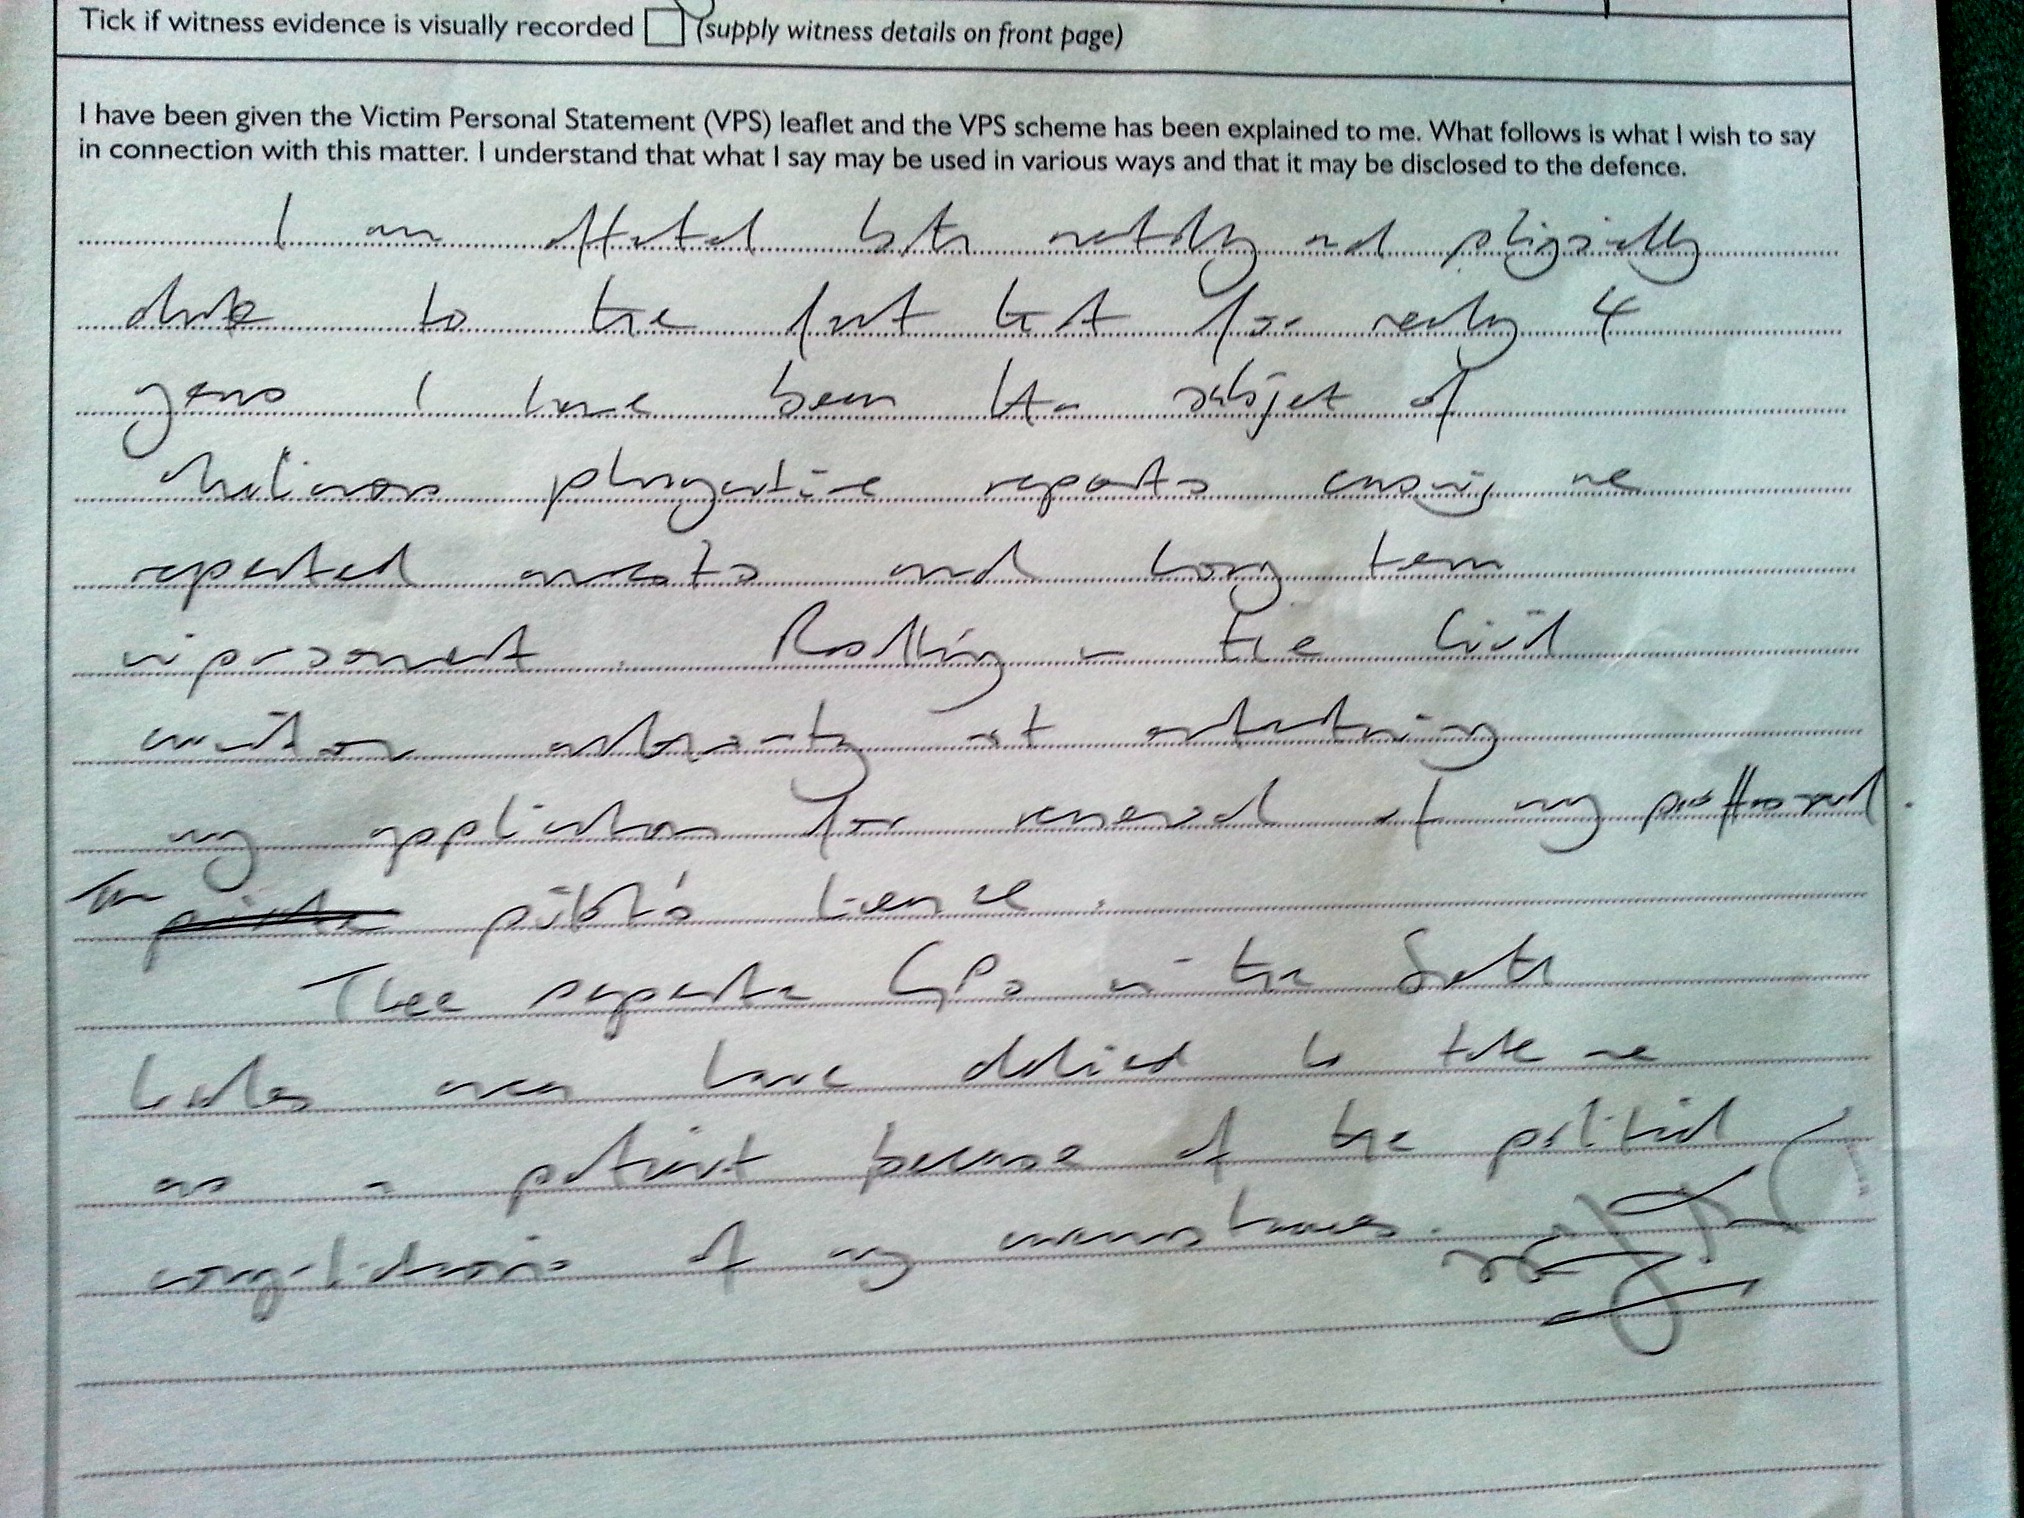 Tick if witness evidence is visually recorded (supply witness details on front page)
I have been given the Victim Personal Statement (VPS) leaflet and the VPS scheme has been explained to me. What follows is what I wish to say
in connection with this matter. I understand that what I say may be used in various ways and that it may be disclosed to the defence.
I am affected both mentally and physically
due to the fact that for nearly 4
years I have been the subject of
reports causing me
repeated arrests and long term
imprisonment. Resulting in the Civil
aviation authority not entertaining
my application for renewal of my professional
pilot's licence.
Three separate GPs in the South
Wales area have declined to take me
as a patient because of the political
complications of my circumstances.